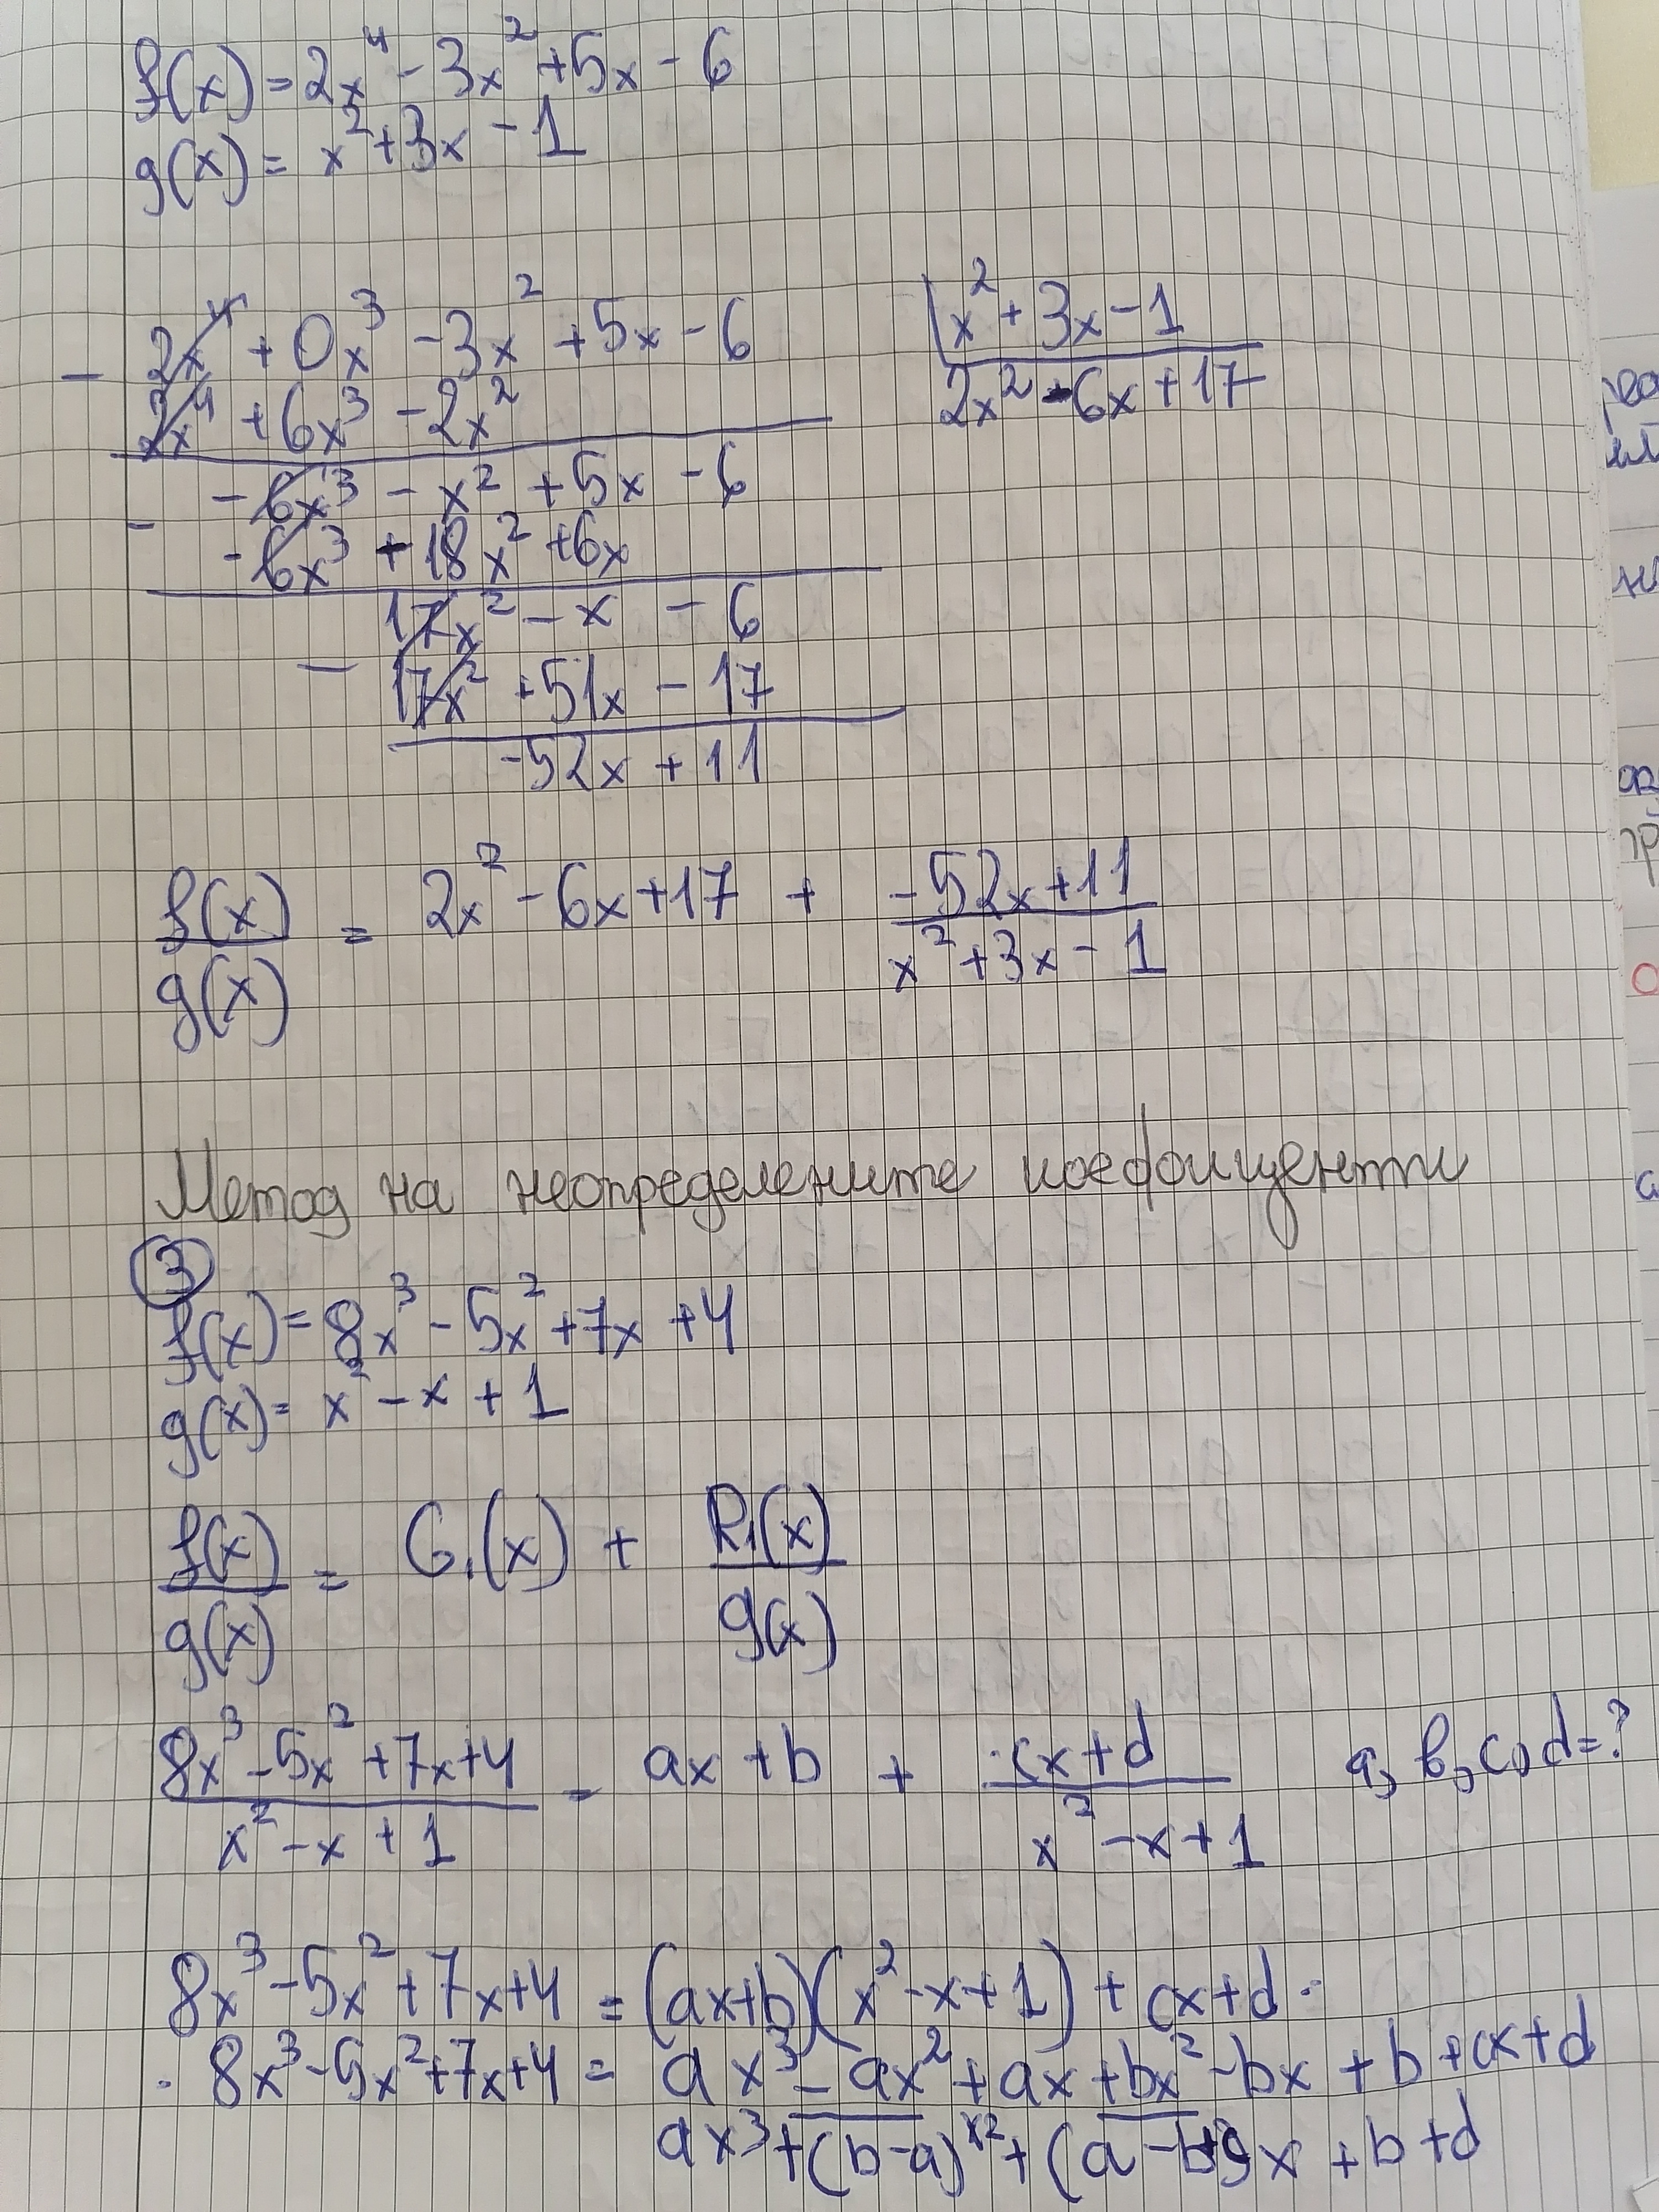 f(x) = 2x⁴ - 3x² + 5x - 6
g(x) = x² + 3x - 1
2x⁴ + 0x³ - 3x² + 5x - 6 | x² + 3x - 1
-
2x⁴ + 6x³ - 2x² 2x² - 6x + 17
- 6x³ - x² + 5x - 6
-
- 6x³ - 18x² + 6x
17x² - x - 6
-
17x² + 51x - 17
-52x + 11
f(x)/g(x) = 2x² - 6x + 17 + (-52x + 11)/(x² + 3x - 1)
Метод на неопределените коефициенти
③
f(x) = 8x³ - 5x² + 7x + 4
g(x) = x² - x + 1
f(x)/g(x) = G₁(x) + R₁(x)/g(x)
(8x³ - 5x² + 7x + 4)/(x² - x + 1) = ax + b + (cx + d)/(x² - x + 1) a, b, c, d = ?
8x³ - 5x² + 7x + 4 = (ax + b)(x² - x + 1) + cx + d
8x³ - 5x² + 7x + 4 = ax³ - ax² + ax + bx² - bx + b + cx + d
ax³ + (b - a)x² + (a - b + c)x + b + d